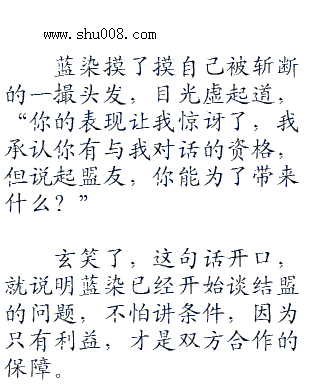 www.shu008.com
蓝染摸了摸自己被斩断
的一撮头发，目光虚起道，
“你的表现让我惊讶了，我
承认你有与我对话的资格，
但说起盟友，你能为了带来
什么？”
玄笑了，这句话开口，
就说明蓝染已经开始谈结盟
的问题，不怕讲条件，因为
只有利益，才是双方合作的
保障。